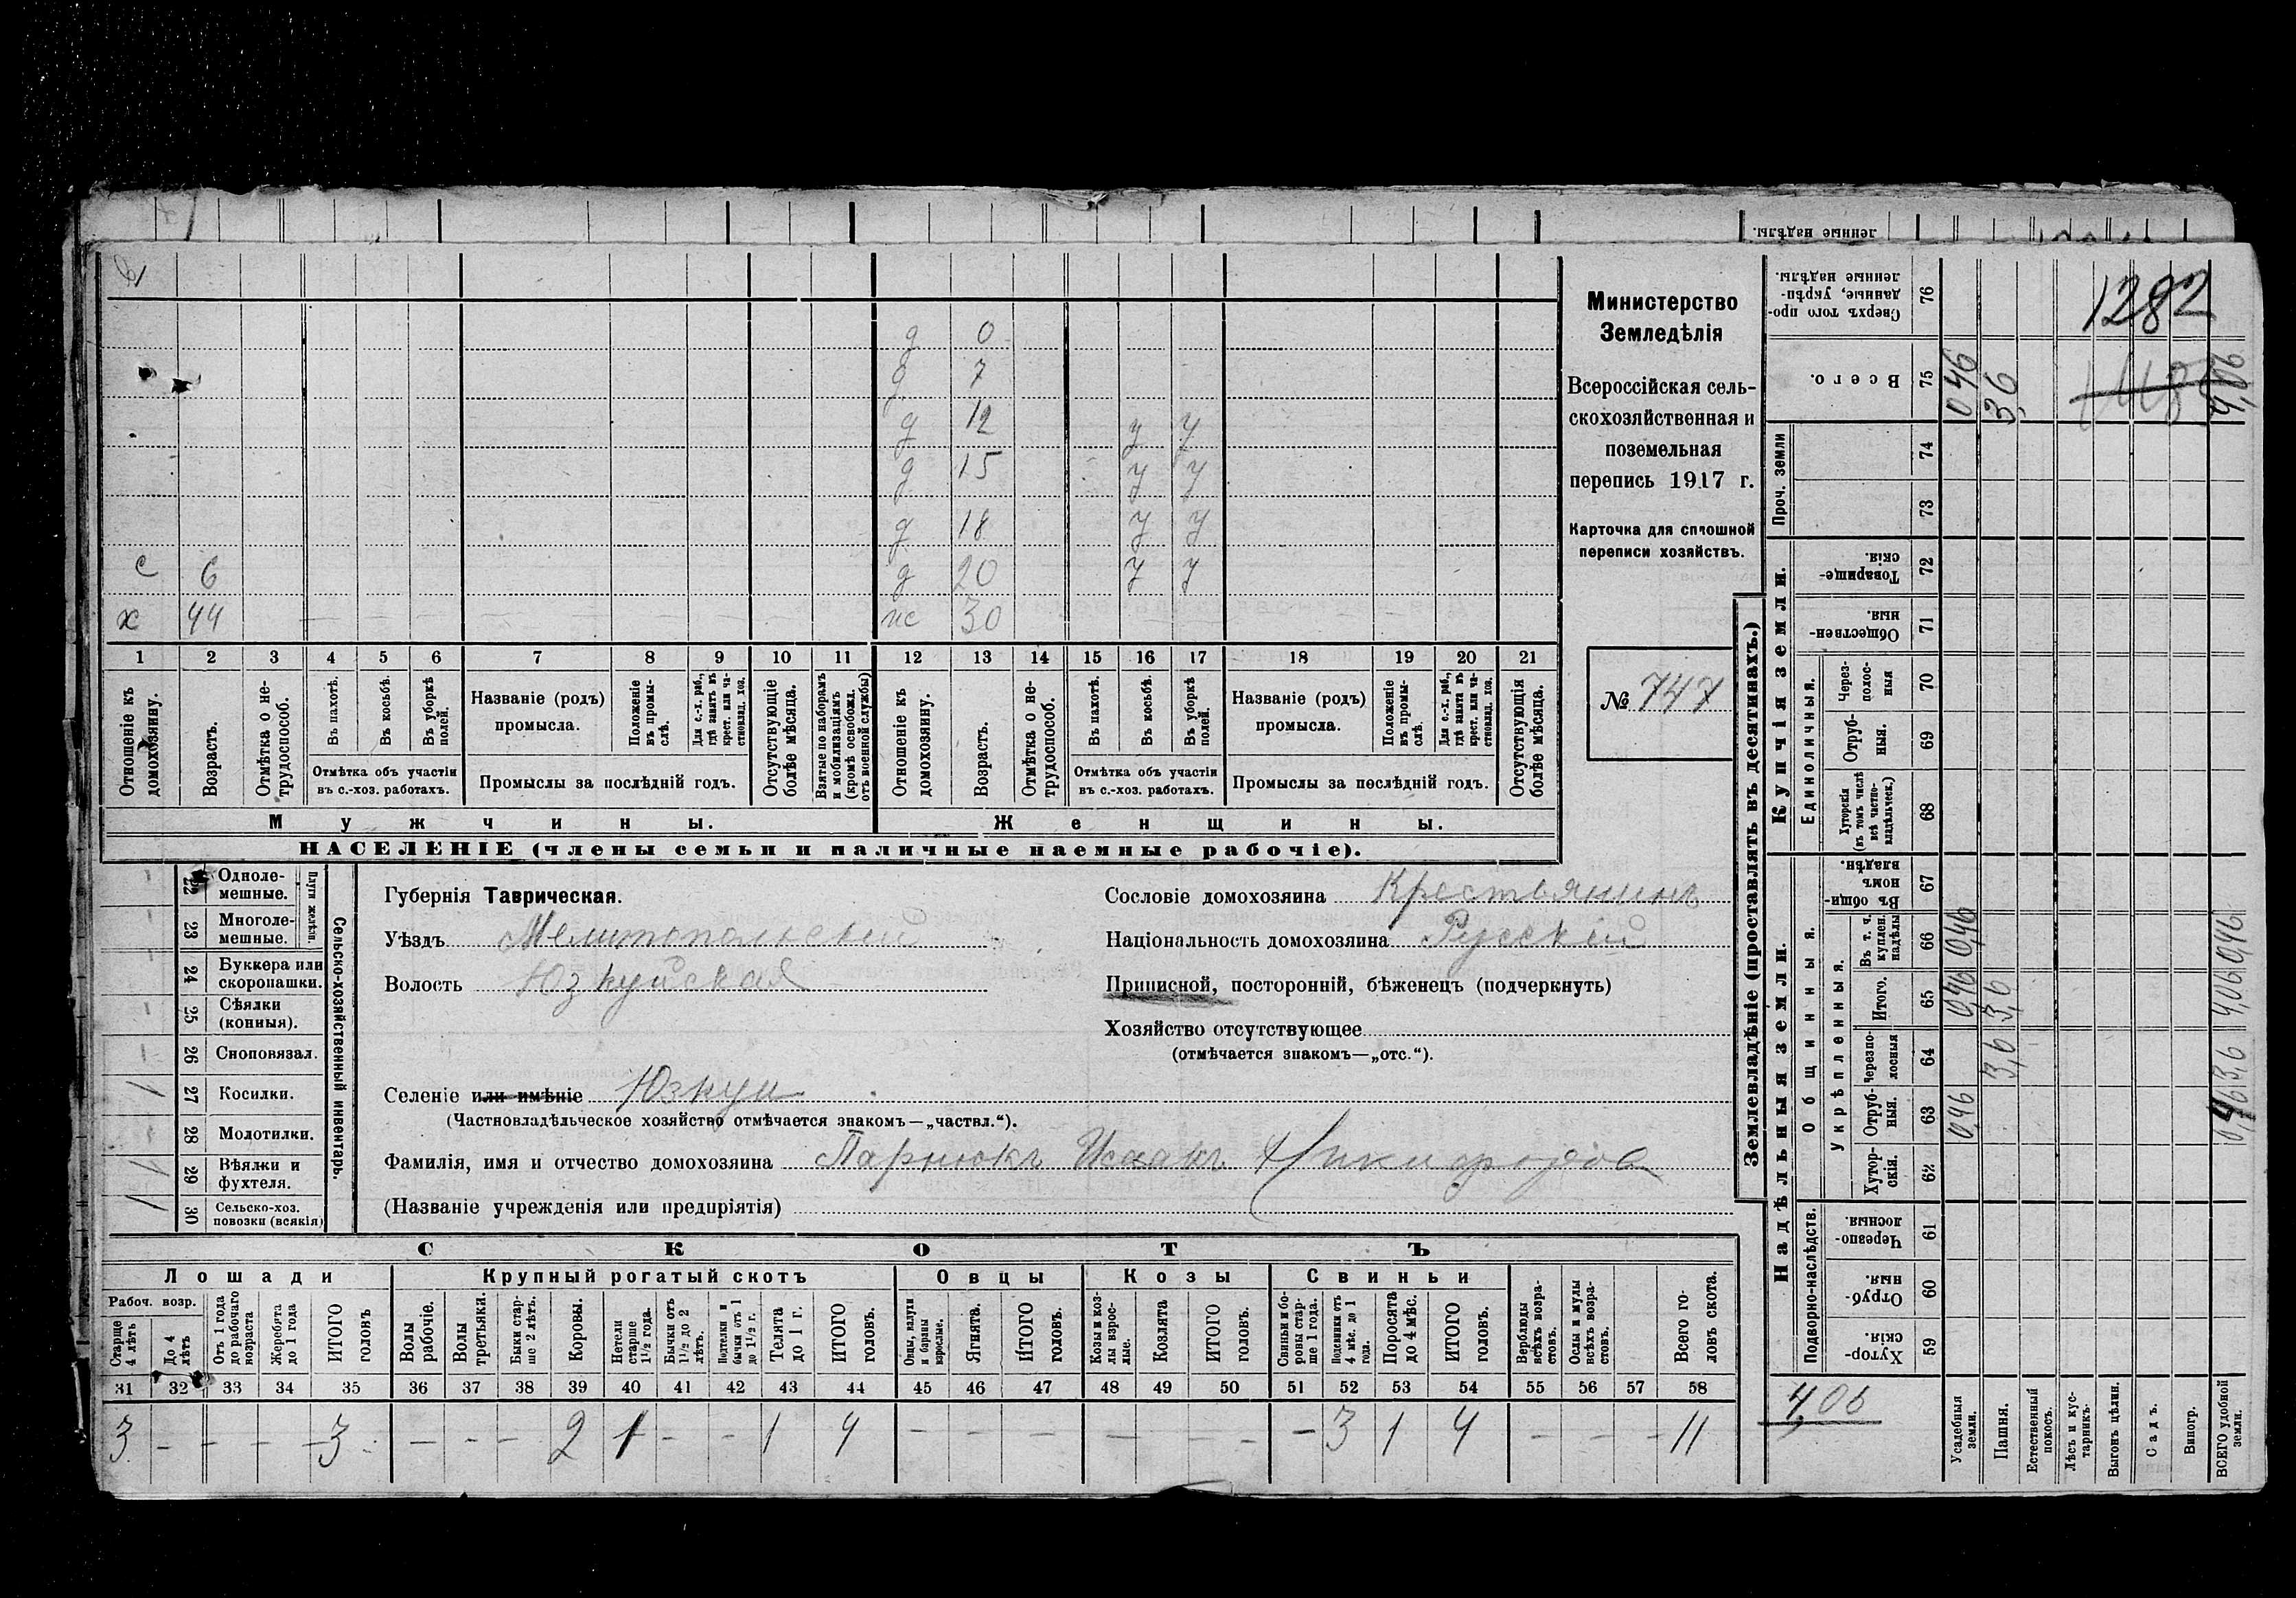 ленные надѣлы.
д 0
д 7
д 12 у у
д 15 у у
д 18 у у
с 6 д 20 у у
х 44 жс 30
1 2 3 4 5 6 7 8 9 10 11 12 13 14 15 16 17 18 19 20 21
Отношеніе къ домохозяину.
Возрастъ.
Отмѣтка о нетрудоспособ.
Въ пахотѣ.
Въ косьбѣ.
Въ уборкѣ полей.
Отмѣтка объ участіи
въ с.-хоз. работахъ.
Названіе (родъ)
промысла.
Положеніе въ промыслѣ.
Для с.-х. раб., гдѣ занятъ въ крест. или частновлад. хоз.
Промыслы за послѣдній годъ.
Отсутствующіе болѣе мѣсяца.
Взятые по наборамъ и мобилизаціямъ (кромѣ освобожд. отъ военной службы)
Отношеніе къ домохозяину.
Возрастъ.
Отмѣтка о нетрудоспособ.
Въ пахотѣ.
Въ косьбѣ.
Въ уборкѣ полей.
Отмѣтка объ участіи
въ с.-хоз. работахъ.
Названіе (родъ)
промысла.
Положеніе въ промыслѣ.
Для с.-х. раб., гдѣ занята въ крест. или частновлад. хоз.
Промыслы за послѣдній годъ.
Отсутствующія болѣе мѣсяца.
Мужчины.
Женщины.
НАСЕЛЕНІЕ (члены семьи и наличные наемные рабочіе).
Министерство
Земледѣлія
Всероссійская сель-
скохозяйственная и
поземельная
перепись 1917 г.
Карточка для сплошной
переписи хозяйствъ.
№ 747
22 Однолемешные.
23 Многолемешные.
Плуги желѣзн.
24 Буккера или скоропашки.
25 Сѣялки (конныя).
26 Сноповязал.
1 27 Косилки.
28 Молотилки.
1 29 Вѣялки и фухтеля.
1 30 Сельско-хоз. повозки (всякія)
Сельско-хозяйственный инвентарь.
Губернія Таврическая.
Уѣздъ Мелитопольскій
Волость Юзкуйская
Сословіе домохозяина Крестьянинъ
Національность домохозяина Русскій
Приписной, посторонній, бѣженецъ (подчеркнуть)
Хозяйство отсутствующее
(отмѣчается знакомъ—„отс.“).
Селеніе или имѣніе Юзкуи
(Частновладѣльческое хозяйство отмѣчается знакомъ—„частвл.“).
Фамилія, имя и отчество домохозяина Парнюкъ Исаакъ Никифоров
(Названіе учрежденія или предпріятія)
СКОТЪ
Лошади
Крупный рогатый скотъ
Овцы
Козы
Свиньи
Рабоч. возр.
Старше 4 лѣтъ
До 4 лѣтъ
Отъ 1 года до рабочаго возраста
Жеребята до 1 года
ИТОГО головъ
Волы рабочіе.
Волы третьяки.
Быки старше 2 лѣтъ.
Коровы.
Нетели старше 1½ года.
Бычки отъ 1½ до 2 лѣтъ.
Подтелки и бычки отъ 1 до 1½ г.
Телята до 1 г.
ИТОГО головъ.
Овцы, валухи и бараны взрослые.
Ягнята.
ИТОГО головъ.
Козы и козлы взрослые.
Козлята
ИТОГО головъ.
Свиньи и боровы старше 1 года.
Подсвинки отъ 4 мѣс. до 1 года.
Поросята до 4 мѣс.
ИТОГО головъ.
Верблюды всѣхъ возрастовъ.
Ослы и мулы всѣхъ возрастовъ.
Всего головъ скота.
31 32 33 34 35 36 37 38 39 40 41 42 43 44 45 46 47 48 49 50 51 52 53 54 55 56 57 58
3 - - - 3 - - - 2 1 - - 1 4 - - - - - - - 3 1 4 - - - 11
Землевладѣніе (проставлять въ десятинахъ.)
Купчія земли.
Надѣльныя земли.
Сверхъ того проданные, укрѣпленные надѣлы. 76
Всего. 75
Проч. земли
74
73
Товарищескія. 72
Общественныя. 71
Единоличныя.
Черезполосныя 70
Отрубныя. 69
Хуторскія (въ томъ числѣ всѣ частновладѣльческ.) 68
Общинныя.
Въ общинномъ владѣн. 67
Укрѣпленныя.
Въ т. ч. куплен. надѣлы 66
Итого. 65
Черезполосныя 64
Отрубныя. 63
Хуторскія. 62
Подворно-наслѣдств.
Черезполосныя. 61
Отрубныя. 60
Хуторскія. 59
1282
0,46 3,6 4,06
0,46 0,46
0,46 3,6 4,06
3,6 3,6
0,46 0,46
4,06
Усадебныя земли.
Пашня.
Естественный покосъ.
Лѣсъ и кустарникъ.
Выгонъ цѣлин.
Садъ.
Виногр.
ВСЕГО удобной земли.